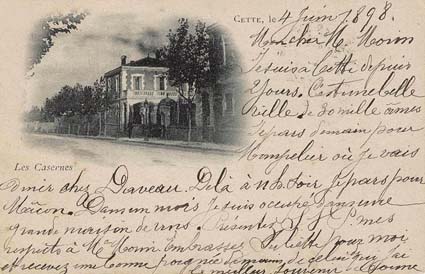 CETTE, le 4 Juin 1898.
Mon cher M. Moun
Je suis à Cette depuis
jours. C'est une belle
ville de 30 mille âmes
Je pars demain pour
Monpelier où je vais
Les Casernes
diner chez Daveau. De là à 11 h. soir Je pars pour
Mâcon. Dans un mois Je suis occupé dans une
grande maison de vins. Présentez mes
respects à Me Moun Embrassez Juliette pour moi
et recevez une bonne poignée de main de celui qui j'ai
le meilleur souvenir